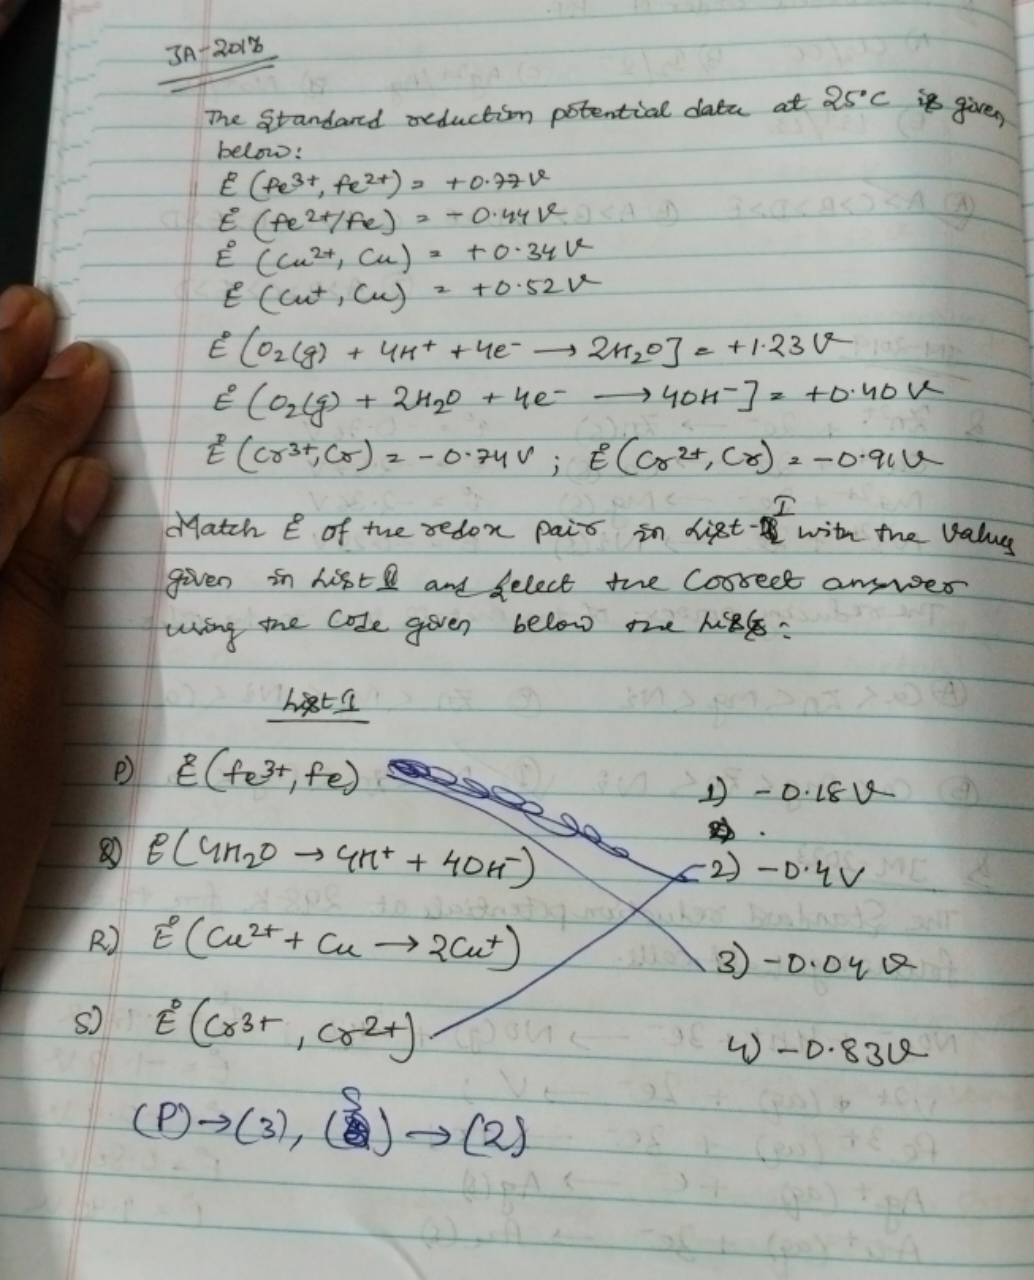 JA-2018
The Standard reduction potential data at 25°C is given
below:
E° (Fe3+, Fe2+) = +0.77V
E° (Fe2+/Fe) = -0.44V
E° (Cu2+, Cu) = +0.34V
E° (Cu+, Cu) = +0.52V
E° [O2(g) + 4H+ + 4e- → 2H2O] = +1.23V
E° [O2(g) + 2H2O + 4e- → 4OH-] = +0.40V
E° (Cr3+, Cr) = -0.74V ; E° (Cr2+, Cr) = -0.91V
Match E° of the redox pair in List-I with the values
given in List and select the correct answer
using the code given below the lists:
List I
P) E° (Fe3+, Fe) 1) -0.18V
Q) E° (4H2O → 4H+ + 4OH-) 2) -0.4V
R) E° (Cu2+ + Cu → 2Cu+) 3) -0.04V
S) E° (Cr3+, Cr2+) 4) -0.83V
(P)→(3), (S)→(2)